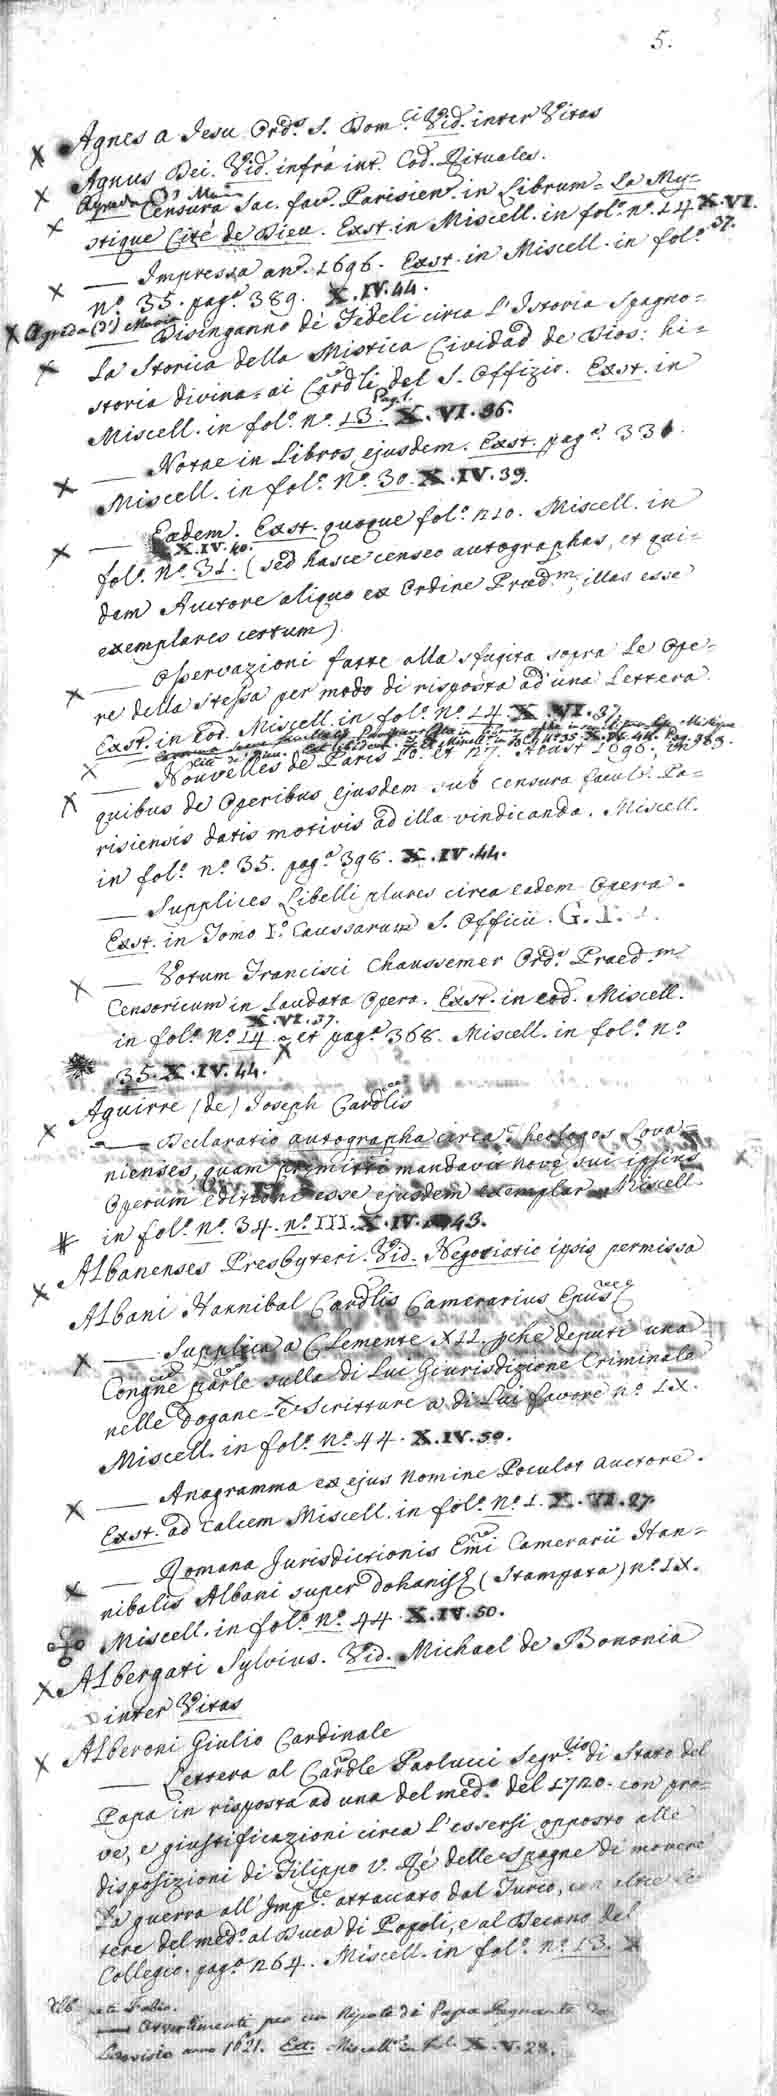 5.
Agnes a Jesu Ord.s S. Dom.ci Vid. inter Vitas
Agnus Dei. Vid. infrà int. Cod. Rituales.
Agreda (d') Maria
Censura Sac. fac. Parisien. in Librum = La My-
stique Cité de Dieu. Exst. in Miscell. in fol.o n.o 14 X.VI.
37.
— Impressa an.o 1696. Exst. in Miscell. in fol.o
n.o 35. pag.a 389. X.IV.44.
Agreda (d') Maria
— Disinganno de' Fideli circa l'Istoria Spagno-
la Storiia della Mistica Cividad de Dios: hi-
storia divina = ai Cardli del S. Offizio. Exst. in
Miscell. in fol.o n.o 13. Pag. 1. X.VI.36.
— Notae in Libros ejusdem. Exst. pag.a 331.
Miscell. in fol.o n.o 30. X.IV.39.
— Eadem. Exst. quoque fol.o 210. Miscell. in
X.IV.40.
fol.o n.o 31. (sed hasce censeo autographas, et qui-
dem Auctore aliquo ex Ordine Praed.m, illas esse
exemplares certum)
— Osservazioni fatte alla sfugita sopra le Ope-
re della stessa per modo di risposta ad una Lettera.
Exst. in eod. Miscell. in fol.o n.o 14 X.VI.37.
— Nouvelles de Paris 20. et 27. Aoust 1696, in
quibus de Operibus ejusdem sub censura facult. Pa-
risiensis datis motivis ad illa vindicanda. Miscell.
in fol.o n.o 35. pag.a 398. X.IV.44.
— Supplices Libelli plures circa eadem Opera.
Exst. in Tomo I.o Caussarum S. Officii. G. I.
— Votum Francisci Chaussemer Ord.s Praed.m
Censoricum in Laudata Opera. Exst. in eod. Miscell.
X.VI.37.
in fol.o n.o 14 et pag.a 368. Miscell. in fol.o n.o
35. X.IV.44.
Aguirre (de) Joseph Cardlis
— Declaratio autographa circa Theologos Lova-
nienses, quam primitti mandavit novę sui ipsius
Operum editioni esse ejusdem exemplar Miscell.
in fol.o n.o 34. n.o III. X.IV. 43.
Albanenses Presbyteri. Vid. Negotiatio ipsis permissa
Albani Hannibal Cardlis Camerarius Epus
— Supplica a Clemente XII. pche deputi una
Congñe parle sulla di Lui Giurisdizione Criminale
nelle Dogane e Scritture a di Lui favore n.o IX.
Miscell. in fol.o n.o 44. X.IV.50.
— Anagramma ex ejus nomine Poculot auctore.
Exst. ad calcem Miscell. in fol.o n.o 1. X.VI.27.
— Romana Jurisdictionis Emi Camerarii Han-
nibalis Albani super dohanis (Stampata) n.o IX.
Miscell. in fol.o n.o 44 X.IV.50.
Albergati Sylvius. Vid. Michael de Bononia
inter Vitas
Alberoni Giulio Cardinale
— Lettera al Cardle Paolucci Segr.rio di Stato del
Papa in risposta ad una del med.o del 1720. con pro-
ve, e giustificazioni circa l'essersi opposto alle
disposizioni di Filippo V. Rè delle Spagne di movere
la guerra all'Imp.re attaccato dal Turco, con altre let-
tere del med.o al Duca di Popoli, e al Decano del
Collegio. pag.a 264. Miscell. in fol.o n.o 13. X
Fabio.
— Avvertimenti per un Nipote di Papa Regnante
anno 1621. Ext. Miscell. in fol. X.V.28.